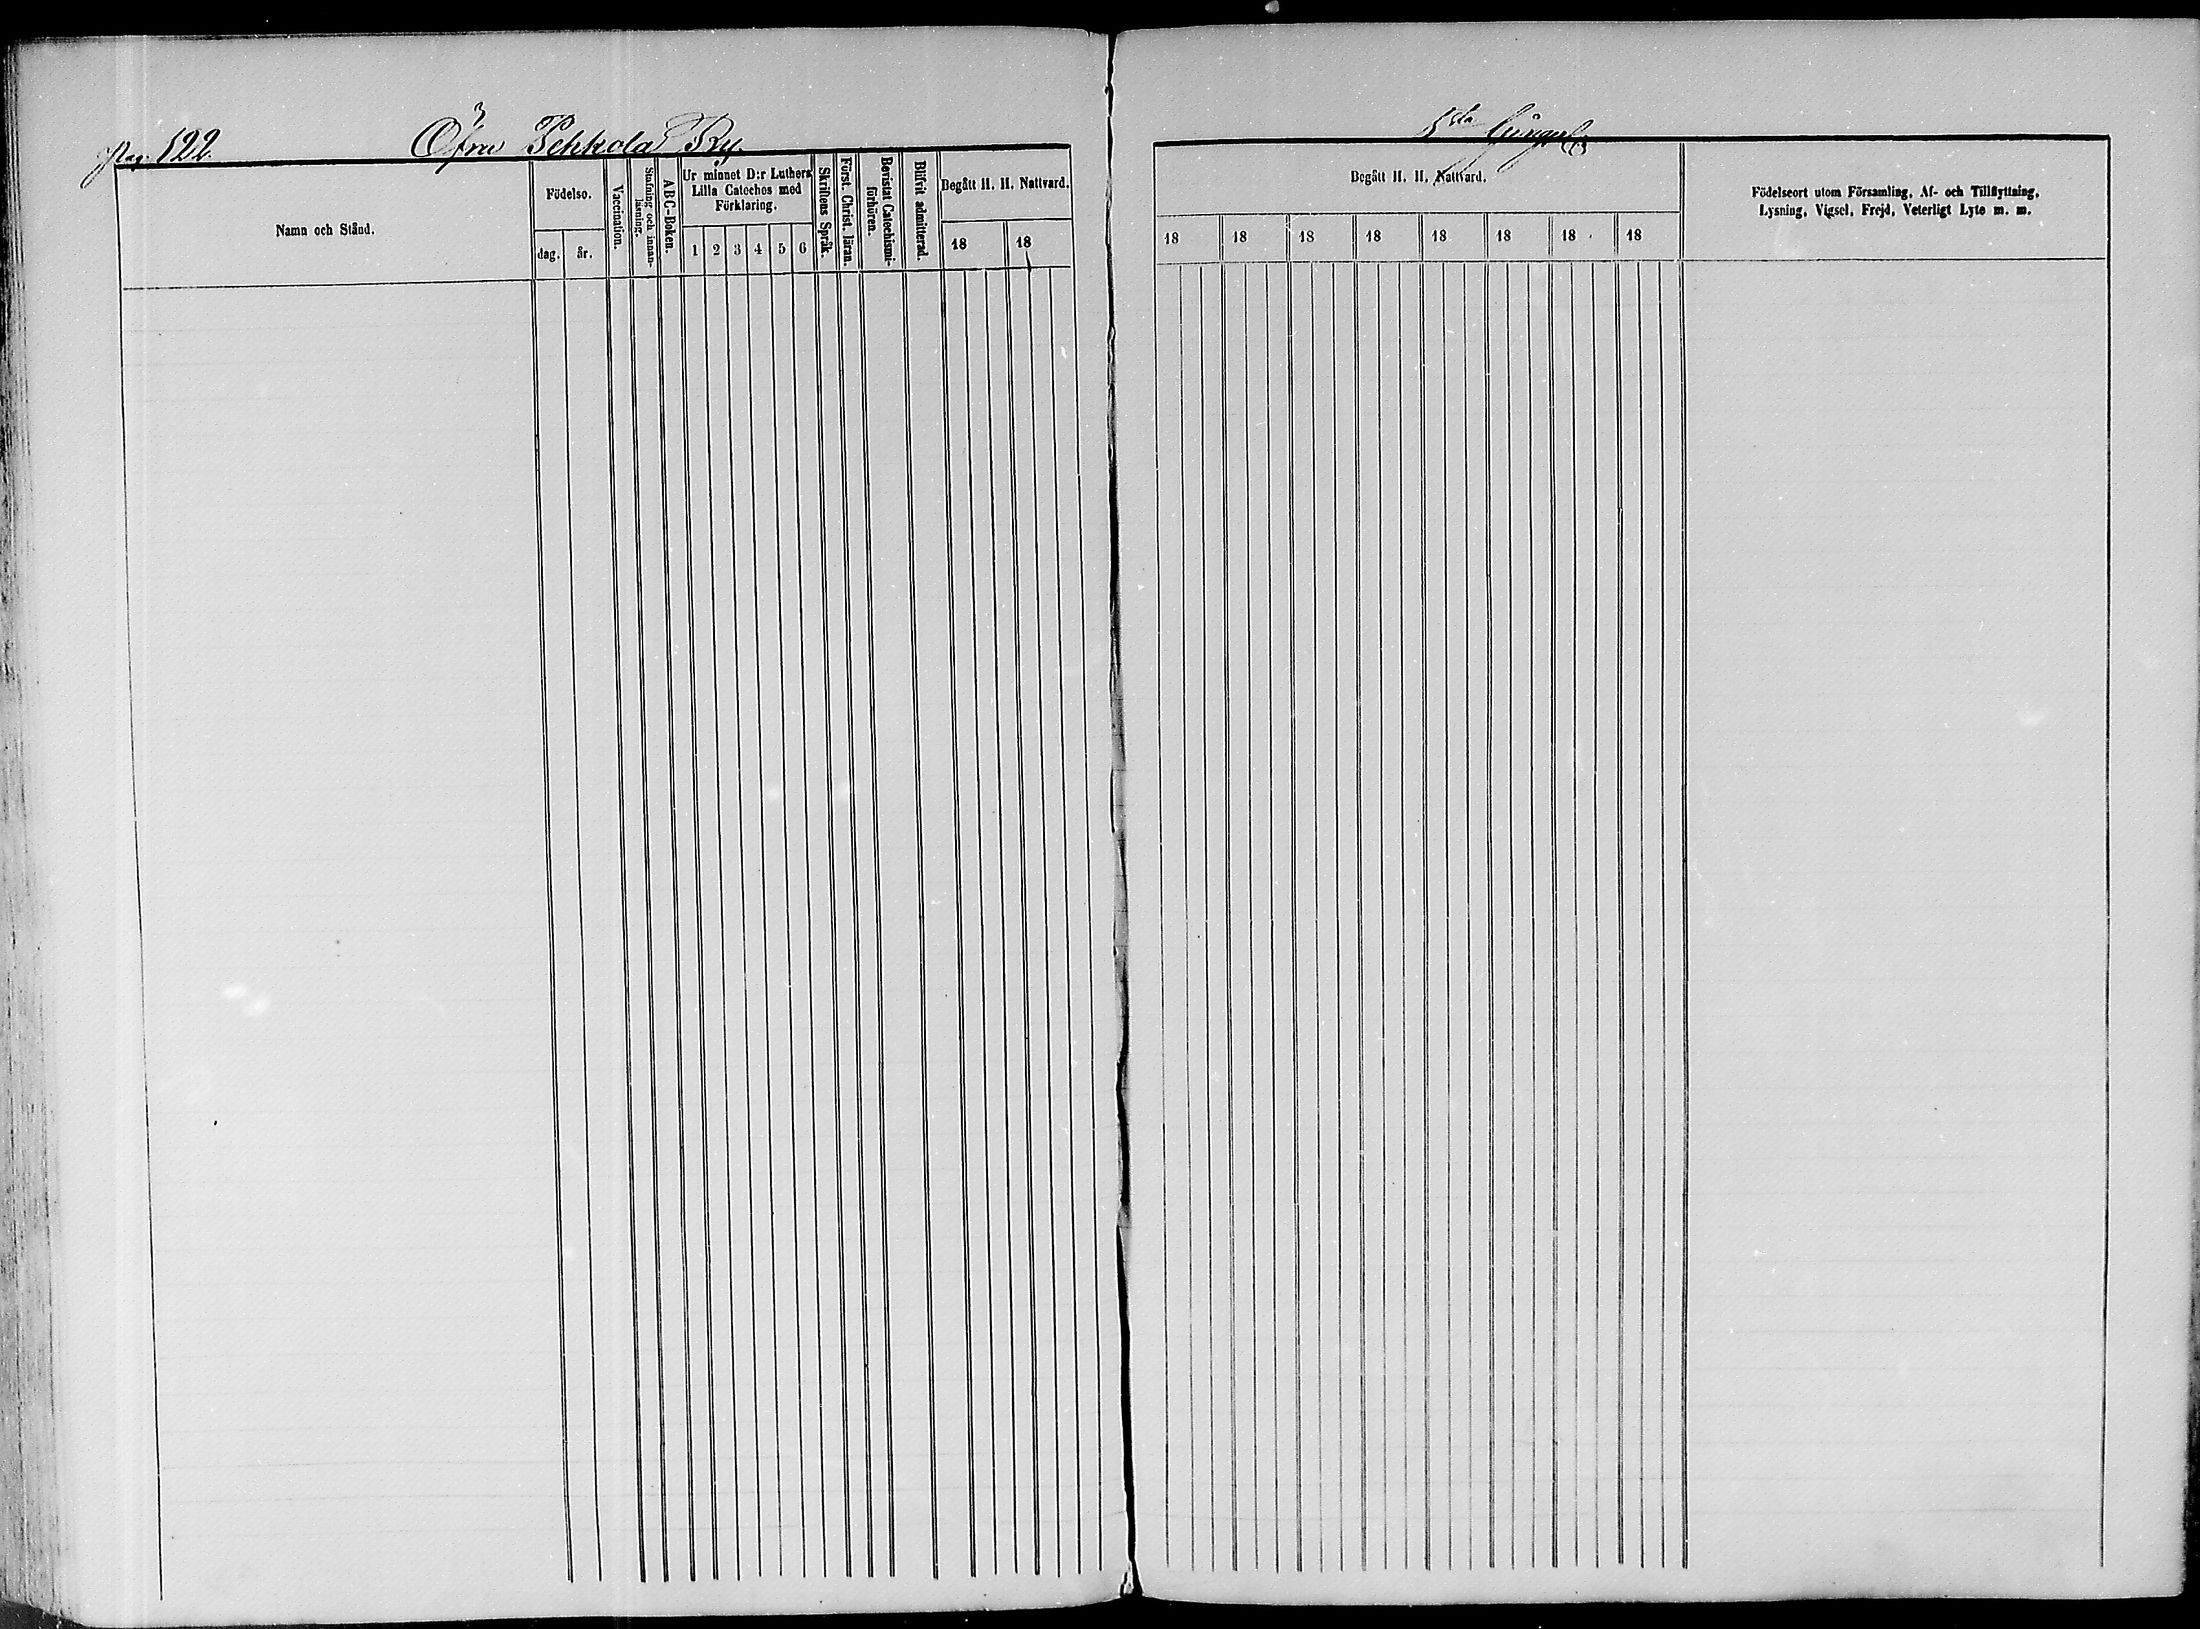 Pag. 522.
Öfre Pehkola By.
5ta
Namn och Stånd.
Födelse.
dag.
år.
Vaccination.
Stafning och innan-
läsning.
ABC-Boken.
Ur minnet D:r Luthers
Lilla Cateches med
Förklaring.
1 2 3 4 5 6
Skriftens Språk.
Först. Christ. läran.
Bevistat Catechismi-
förhören.
Blifvit admitterad.
Begått H. H. Nattvard.
18 18
Begått H. H. Nattvard.
18 18 18 18 18 18 18 18
Födelseort utom Församling, Af- och Tillflyttning,
Lysning, Vigsel, Frejd, Veterligt Lyte m. m.